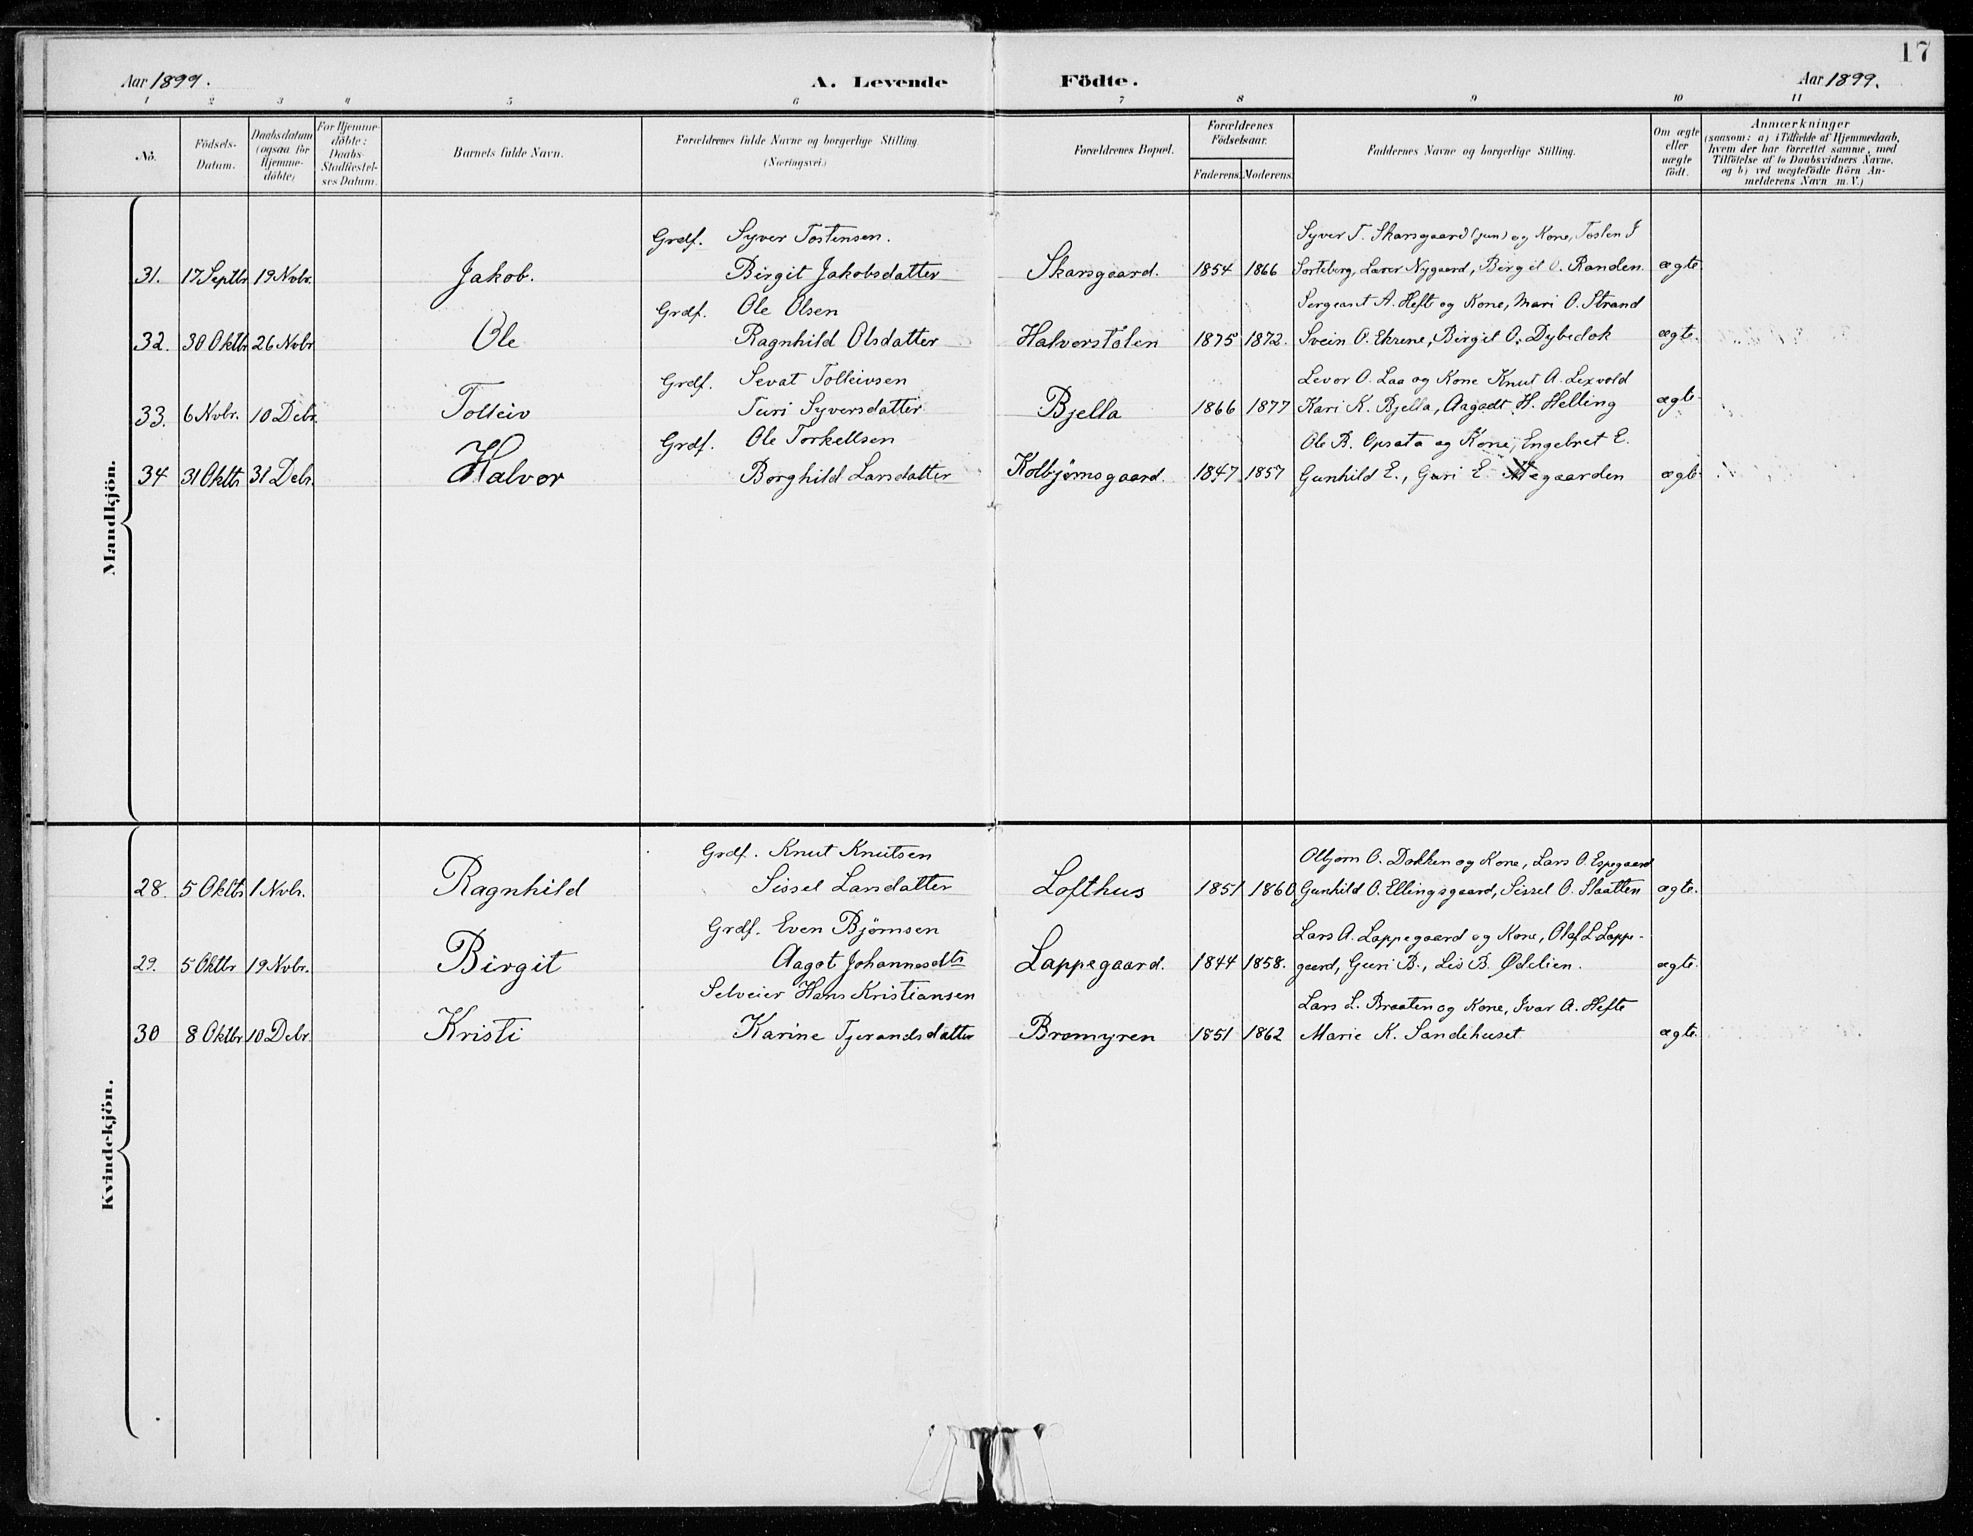 17
Aar 1899. A. Levende Födte. Aar 1899.
1 2 3 4 5 6 7 8 9 10 11
No. Födsels-Datum. Daabsdatum (ogsaa for Hjemme-döbte) For Hjemme-döbte: Daabs-Stadfæstel-ses Datum. Barnets fulde Navn. Forældrenes fulde Navne og borgerlige Stilling (Næringsvei.) Forældrenes Bopæl. Forældrenes Födselsaar. Faderens. Moderens. Faddernes Navne og borgerlige Stilling. Om ægte eller uægte födt. Anmærkninger (saasom: a) i Tilfælde af Hjemmedaab, hvem der har forrettet samme, med Tilföielse af to Daabsvidners Navne, og b) ved uægtefödte Börn An-melderens Navn m. V.)
Mandkjön.
Grdf. Syver Tostensen. Syver T. Skarsgaard (jun) og Kone, Tosten J
31. 17 Septbr 19 Nvbr. Jakob. Birgit Jakobsdatter Skarsgaard. 1854 1866 Sorteberg, Laver Nygaard, Birgit O. Randen. ægte
Grdf. Ole Olsen Sergeant A. Hefte og Kone, Mari O. Strand
32. 30 Oktbr 26 Nvbr Ole Ragnhild Olsdatter Halverstølen 1875 1872. Svein O. Ehrene, Birgit O. Dybedok ægte.
Grdf. Sevat Tolleivsen Levor O. Laa og Kone Knut A. Lexvold
33. 6 Nvbr. 10 Debr. Tolleiv Turi Syversdatter Bjella 1866 1877 Kari K. Bjella, Aagadt H. Helling ægte
Grdf. Ole Torkellsen Ole B. Opsata og Kone, Engebret E.
34 31 Oktb 31 Debr. Halvor Borghild Larsdatter Kolbjørnsgaard. 1847 1857 Gunhild E., Guri E. gaarden ægte
Kvindekjön.
Grdf. Knut Knutsen Olbjørn O. Dokken og Kone, Lars O. Espegaard
28. 5 Oktbr 1 Nvbr. Ragnhild Sissel Larsdatter Lofthus 1851 1860 Gunhild O. Ellingsgaard, Sissel O. Slaatten ægte.
Grdf. Even Bjørnsen Lars A. Lappegaard og Kone, Olaf L Lappe-
29. 5 Oktbr 19 Nvbr. Birgit Aagot Johannesdtr Lappegaard. 1844 1858. gaard, Guri B., Lis B. Ødelien. ægte.
Selveier Hans Kristiansen Lars L. Braaten og Kone, Ivar A. Hefte
30 8 Oktbr 10 Debr. Kristi Karine Tjerandsdatter Bromyren 1851 1862 Marie K. Sandehuset ægte.